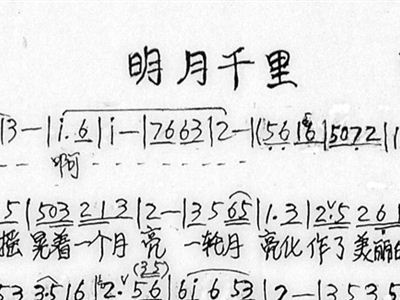 明月千里
3 - | i. 6 | i - | 7663 | 2 - | (56 i6 | 5072 |
啊
5 | 503 213 | 2 - | 35 65 | 1. 3 | 2. 5 261
摇 晃着一个月 亮 一轮月 亮化作了美丽的
(35)
53 3.516 | 2. 56 | 6i 653 | 2 - | 3535